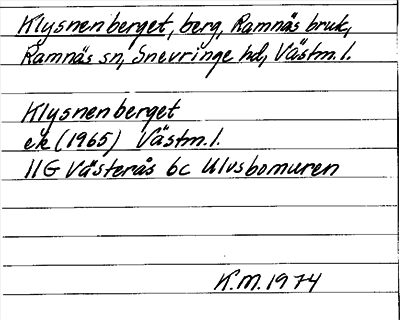 Klysnenberget, berg, Ramnäs bruk,
Ramnäs sn, Snevringe hd, Västm.l.
Klysnenberget
ek (1965) Västm.l.
11G Västerås 6c Ulvsbomuren
K.M. 1974